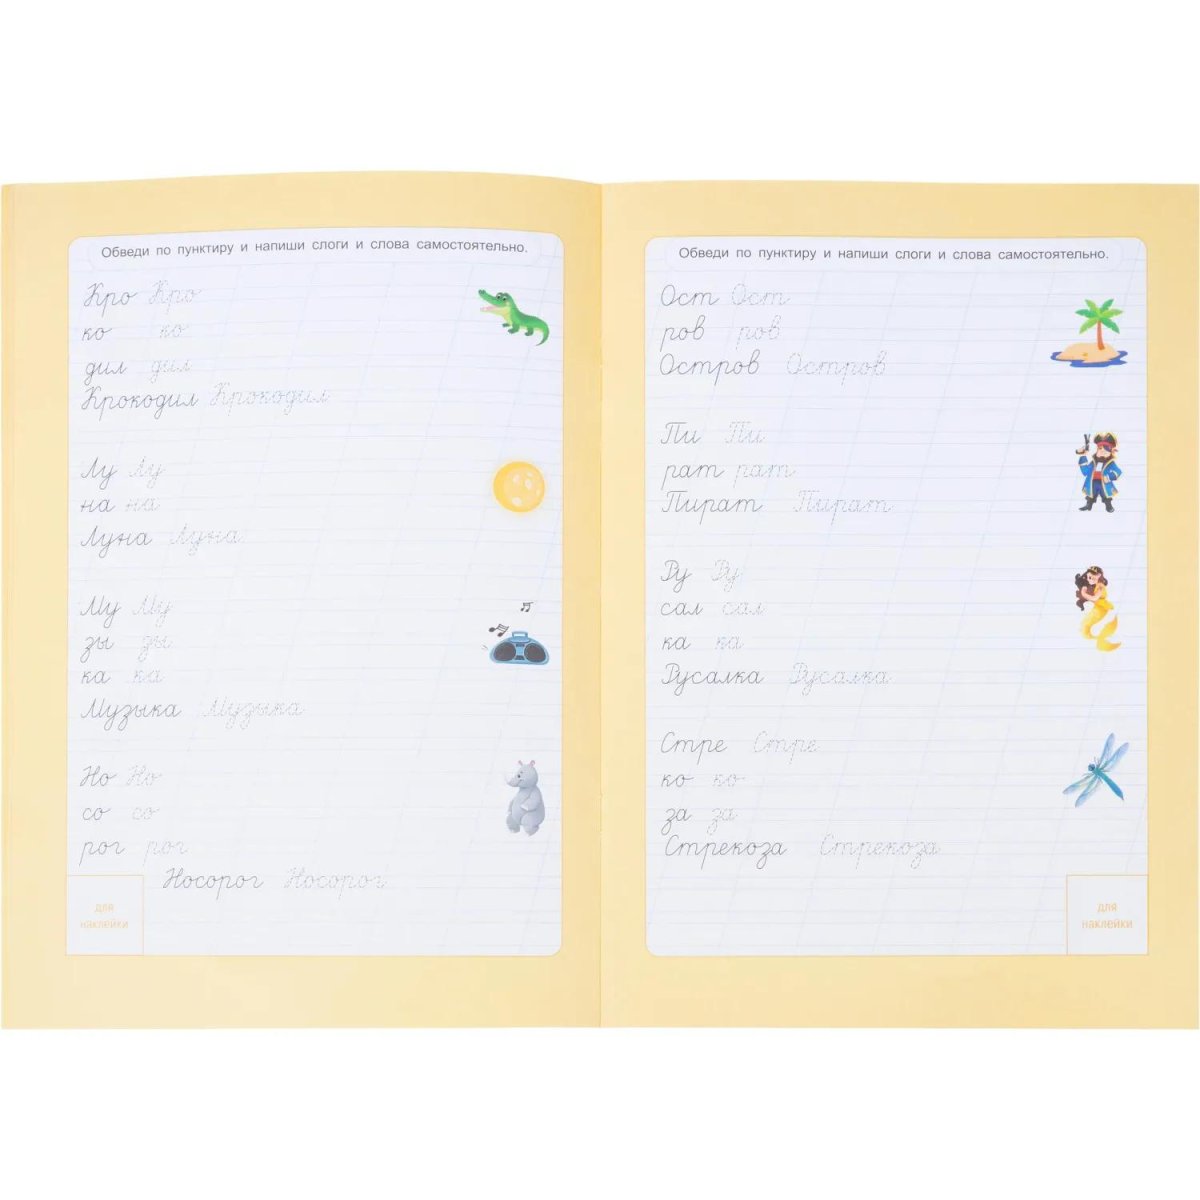 Обведи по пунктиру и напиши слоги и слова самостоятельно.
Кро Кро
ко ко
дил дил
Крокодил Крокодил
Лу Лу
на на
Луна Луна
Му Му
зы зы
ка ка
Музыка Музыка
Но Но
со со
рог рог
Носорог Носорог
для
наклейки
Обведи по пунктиру и напиши слоги и слова самостоятельно.
Ост Ост
ров ров
Остров Остров
Пи Пи
рат рат
Пират Пират
Ру Ру
сал сал
ка ка
Русалка Русалка
Стре Стре
ко ко
за за
Стрекоза Стрекоза
для
наклейки